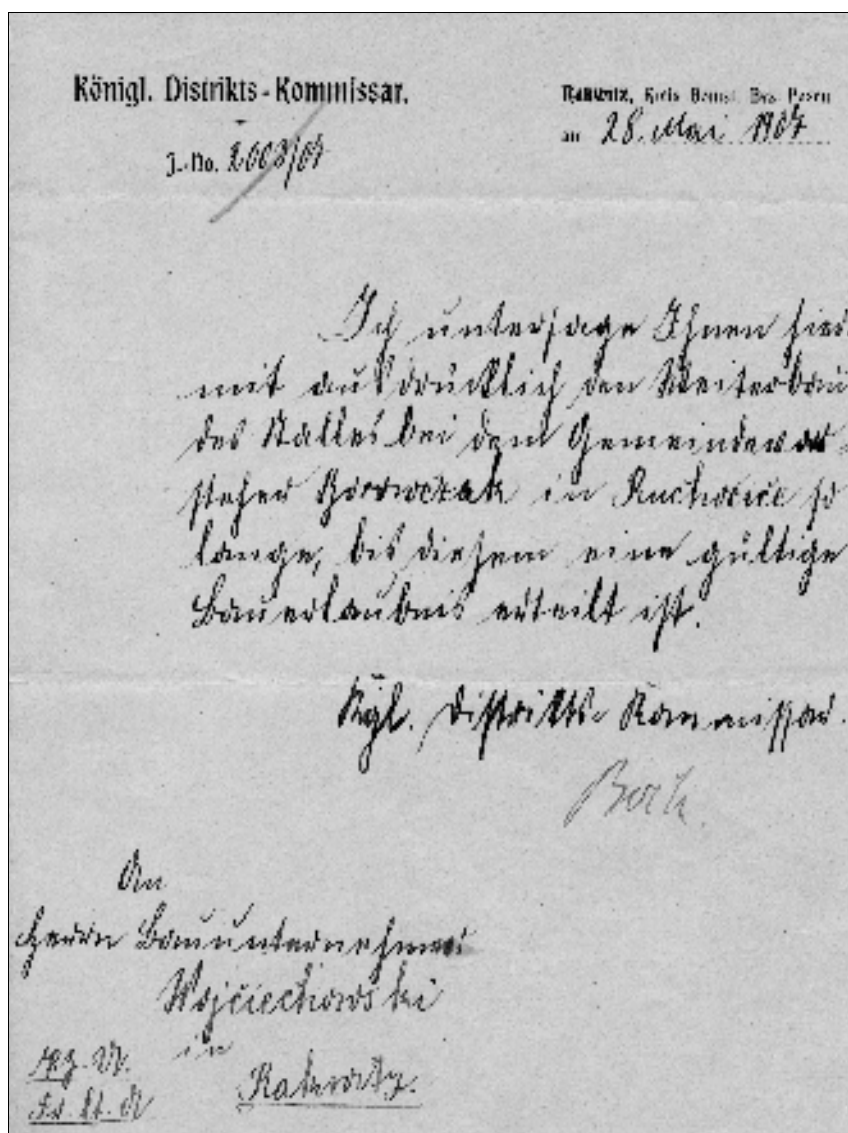 Königl. Distrikts-Kommissar.
Rakwitz, Kreis Bomst, Bez. Posen
28. Mai 1907
J.-No. 2003/07
Ich untersage Ihnen hier
mit ausdrücklich den Weiterbau
des Stalles bei dem Gemeindevor-
steher in Ruchocice so
lange, bis diesem eine gültige
Bauerlaubnis erteilt ist.
Kgl. Distrikts-Kommissar.
An
Herrn Bauunternehmer
Wojciechowski
in
Rakwitz.